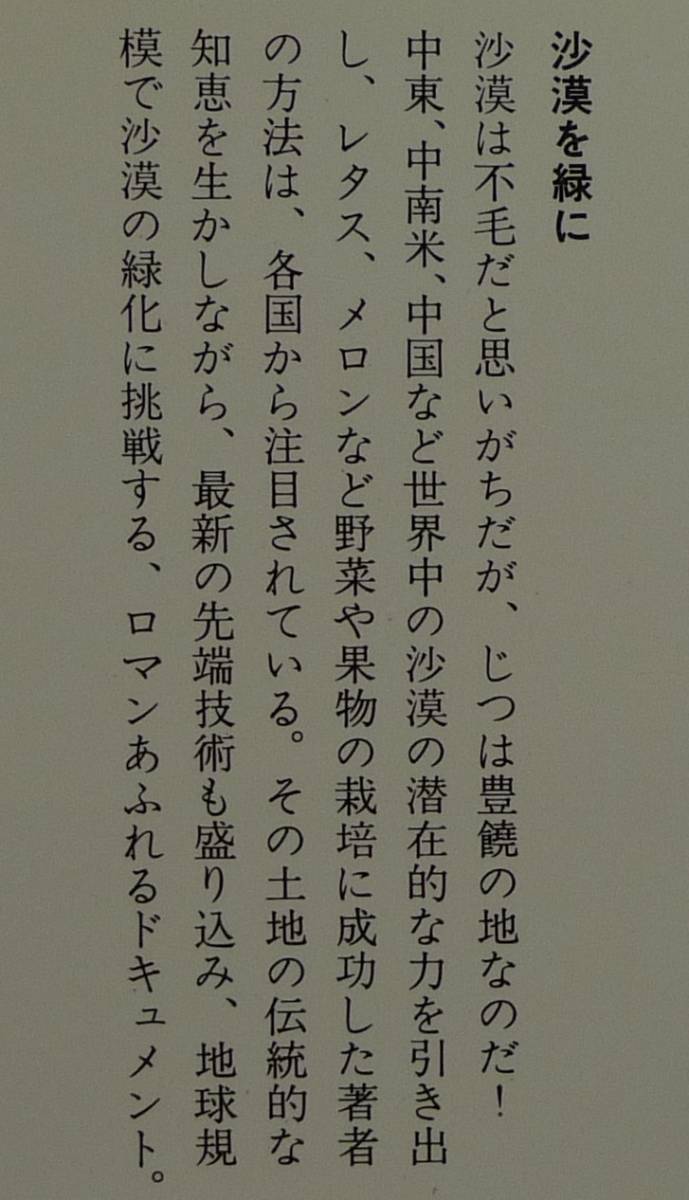 沙漠を緑に
沙漠は不毛だと思いがちだが、じつは豊饒の地なのだ！
中東、中南米、中国など世界中の沙漠の潜在的な力を引き出
し、レタス、メロンなど野菜や果物の栽培に成功した著者
の方法は、各国から注目されている。その土地の伝統的な
知恵を生かしながら、最新の先端技術も盛り込み、地球規
模で沙漠の緑化に挑戦する、ロマンあふれるドキュメント。